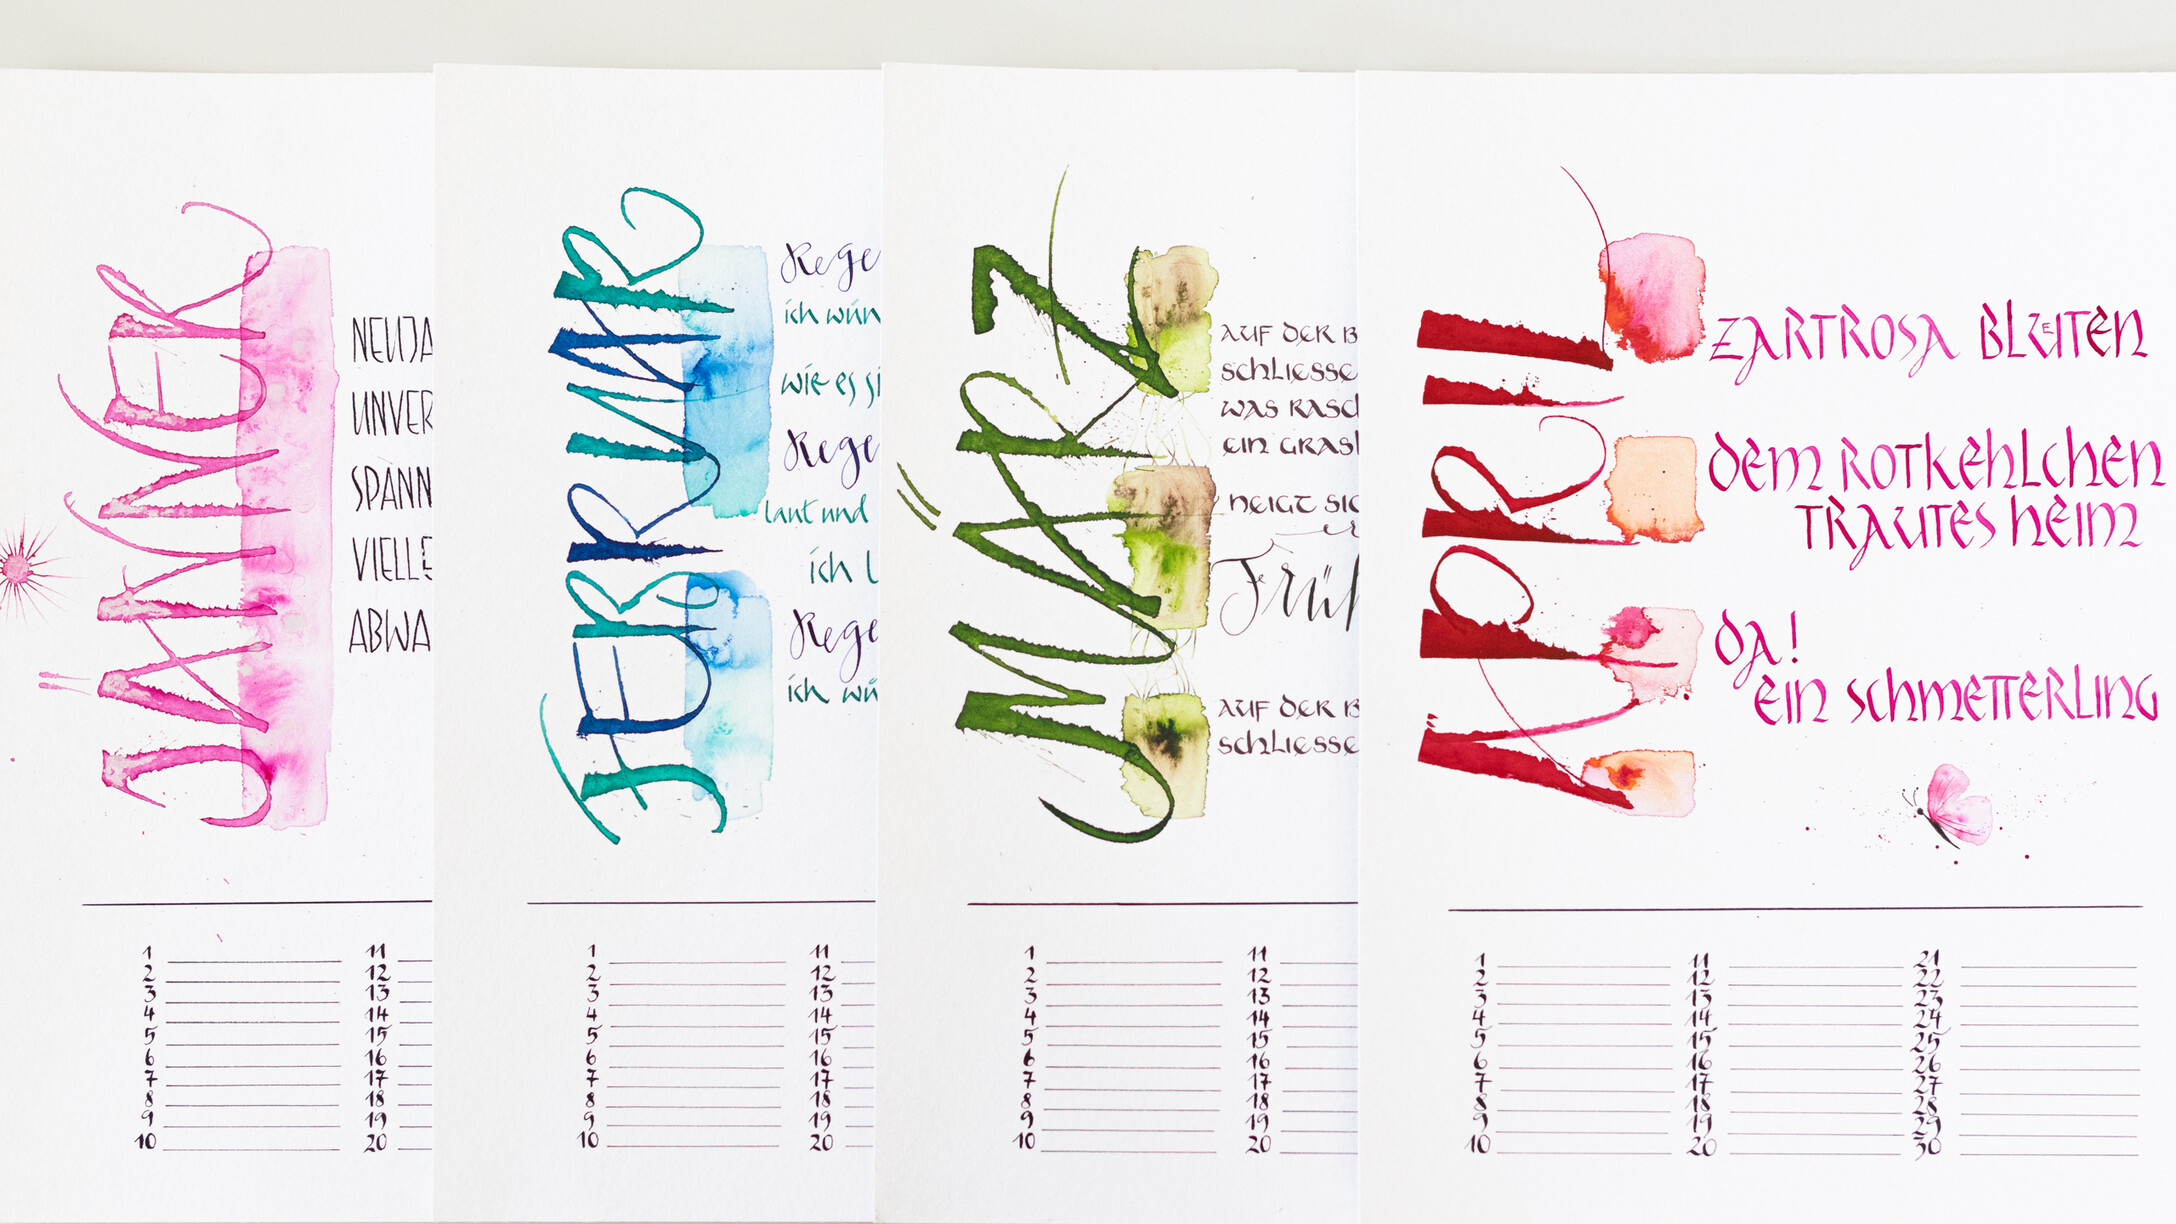 JÄNNER
NEUJA
UNVER
SPANN
VIELLE
ABWA
1
2
3
4
5
6
7
8
9
10
11
12
13
14
15
16
17
18
19
20
FEBRUAR
Rege
ich wün
wie es si
Rege
laut und
ich l
Rege
ich wü
1
2
3
4
5
6
7
8
9
10
11
12
13
14
15
16
17
18
19
20
MÄRZ
AUF DER B
SCHLIESSE
WAS RASC
EIN GRASL
NEIGT SIC
er
Früh
AUF DER B
SCHLIESSE
1
2
3
4
5
6
7
8
9
10
11
12
13
14
15
16
17
18
19
20
APRIL
ZARTROSA BLUETEN
DEM ROTKEHLCHEN
TRAUTES HEIM
DA!
EIN SCHMETTERLING
1
2
3
4
5
6
7
8
9
10
11
12
13
14
15
16
17
18
19
20
21
22
23
24
25
26
27
28
29
30